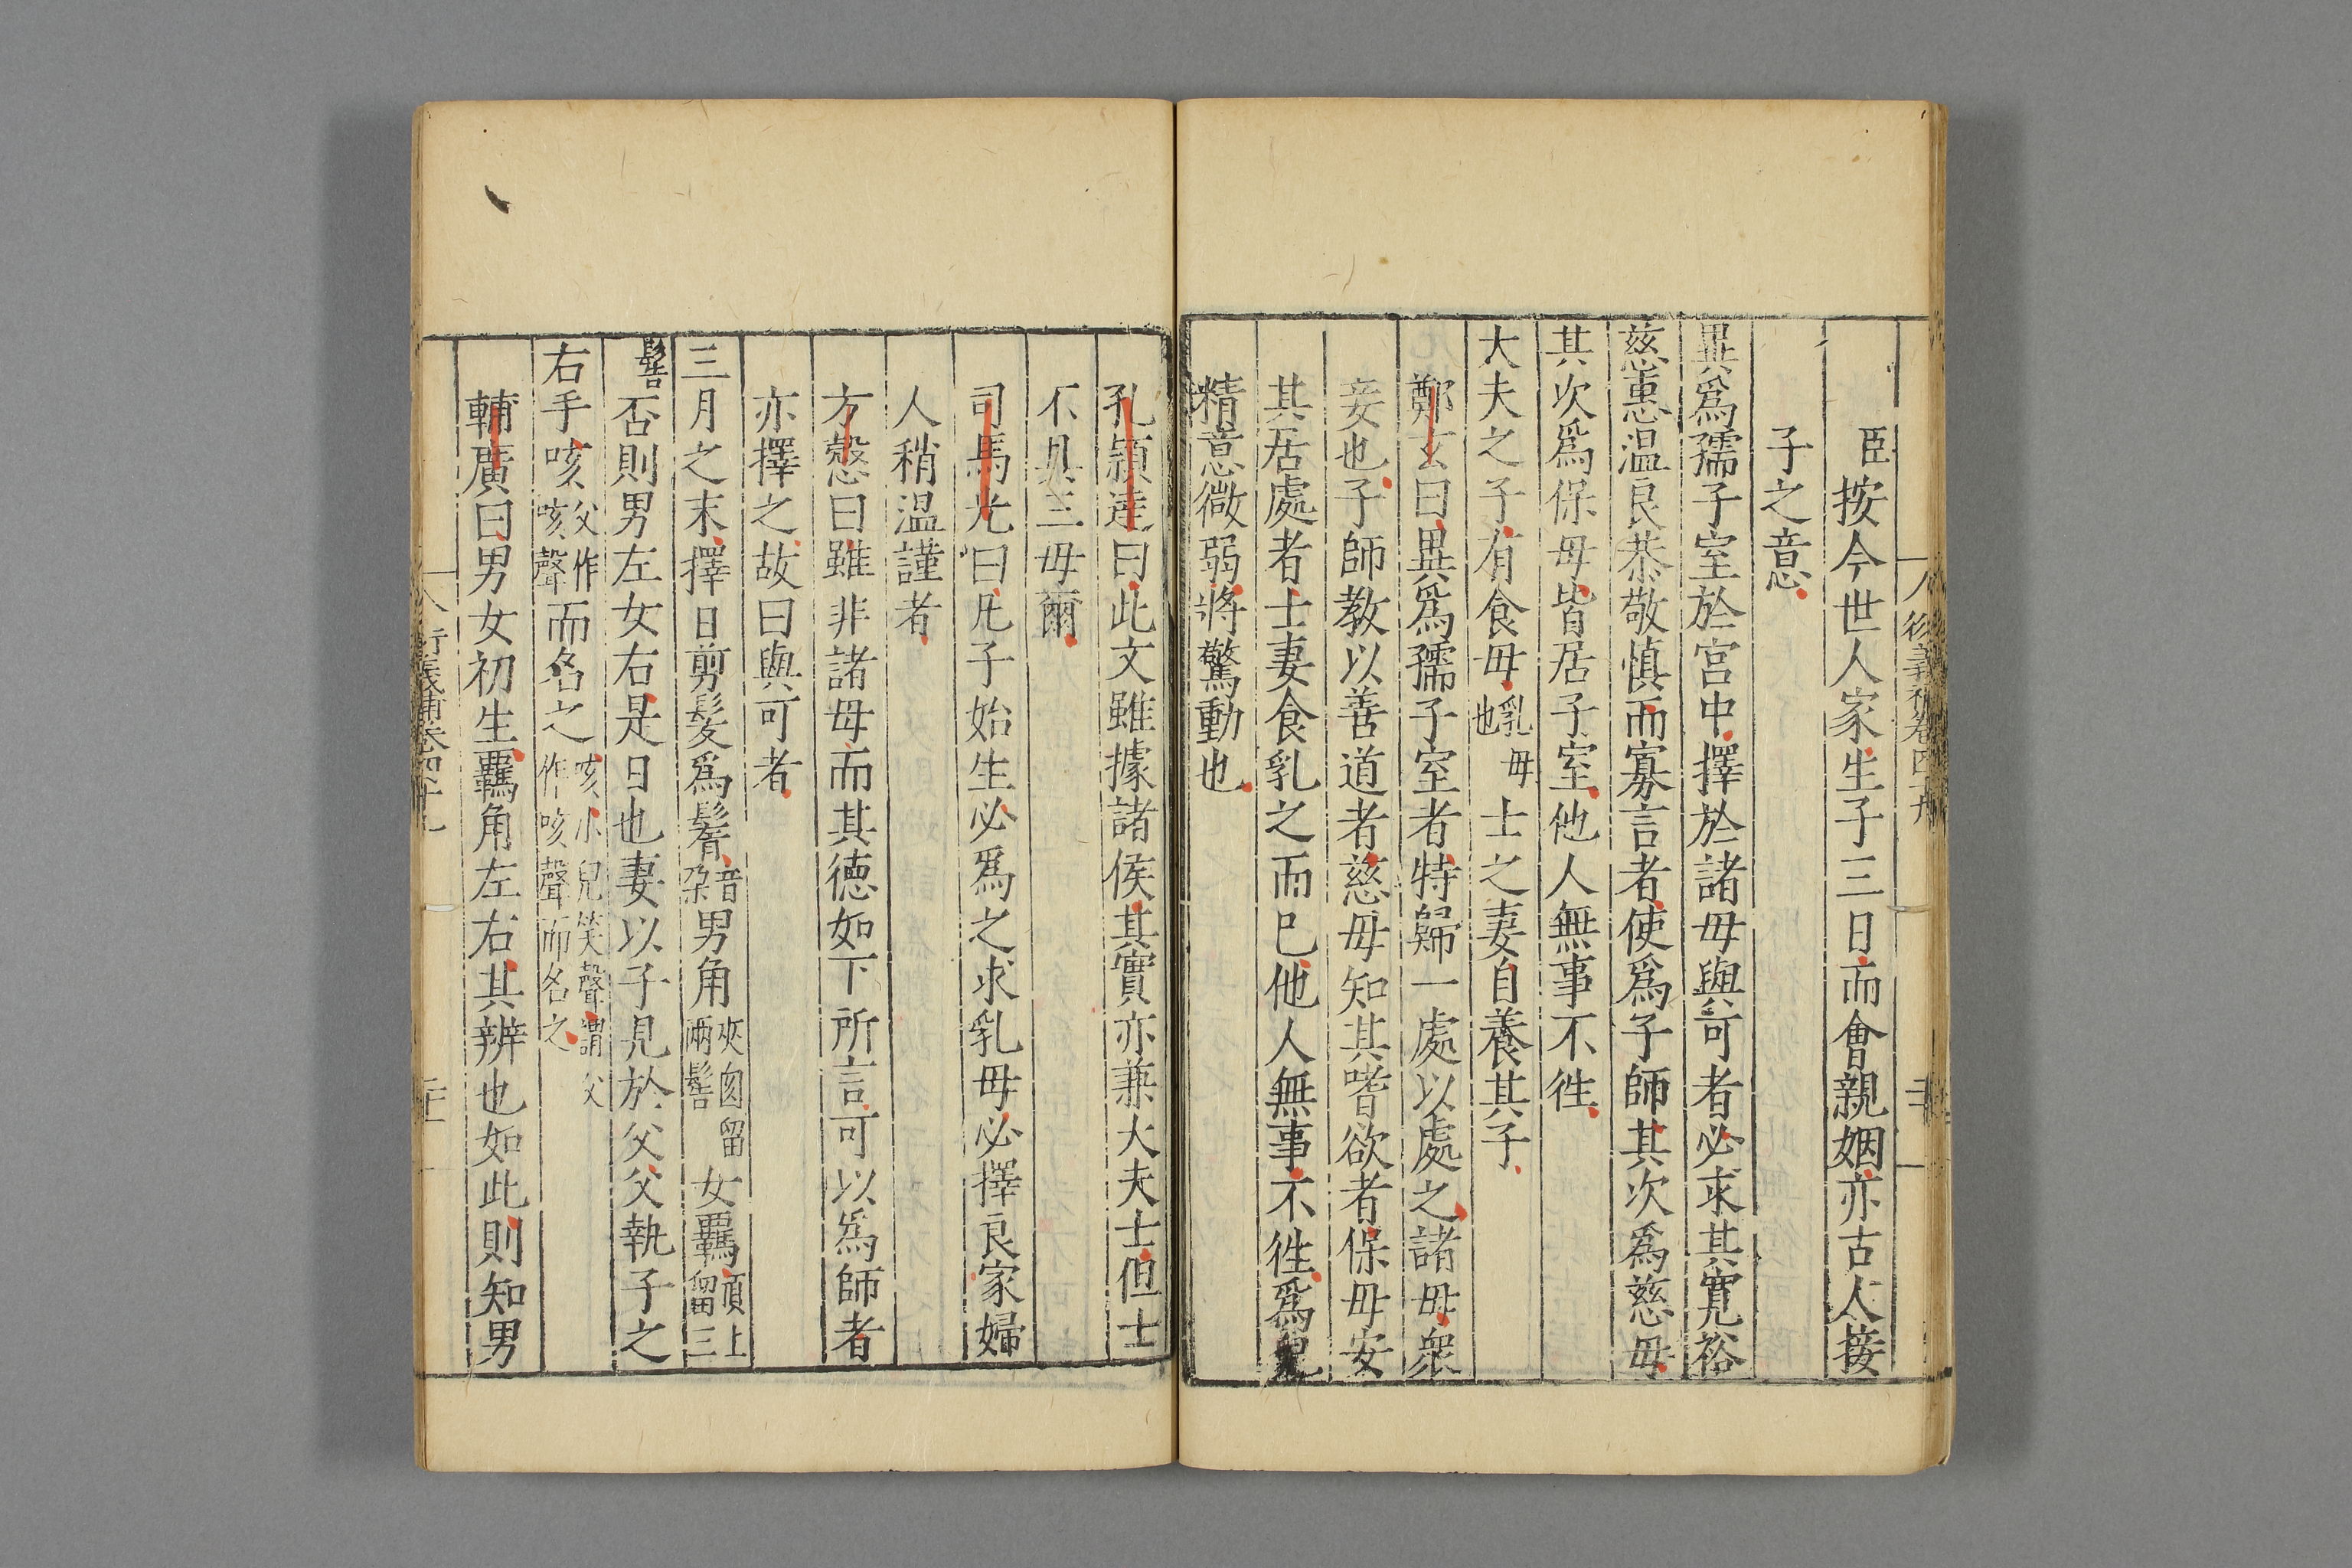 臣按今世人家生子三日而會親姻亦古人接
子之意
異爲孺子室於宮中擇於諸母與可者必求其寬裕
慈惠温良恭敬慎而寡言者使爲子師其次爲慈母
其次爲保母皆居子室他人無事不徃
大夫之子有食母乳母也士之妻自養其子
鄭玄曰異爲孺子室者特歸一處以處之諸母衆
妾也子師教以善道者慈母知其嗜欲者保母安
其居處者士妻食乳之而已他人無事不徃爲兒
精意微弱將驚動也
孔頴逹曰此文雖據諸侯其實亦兼大夫士但士
不具三母爾
司馬光曰凡子始生必爲之求乳母必擇良家婦
人稍温謹者
方慤曰雖非諸母而其德如下所言可以爲師者
亦擇之故曰與可者
三月之末擇日剪髮爲鬌音朶男角夾囟留兩髻女羈頂上留三
髻否則男左女右是日也妻以子見於父父執子之
右手咳父作咳聲而名之咳小兒笑聲謂父作咳聲而名之
輔廣曰男女初生羈角左右其辨也如此則知男
衍義補卷四十九